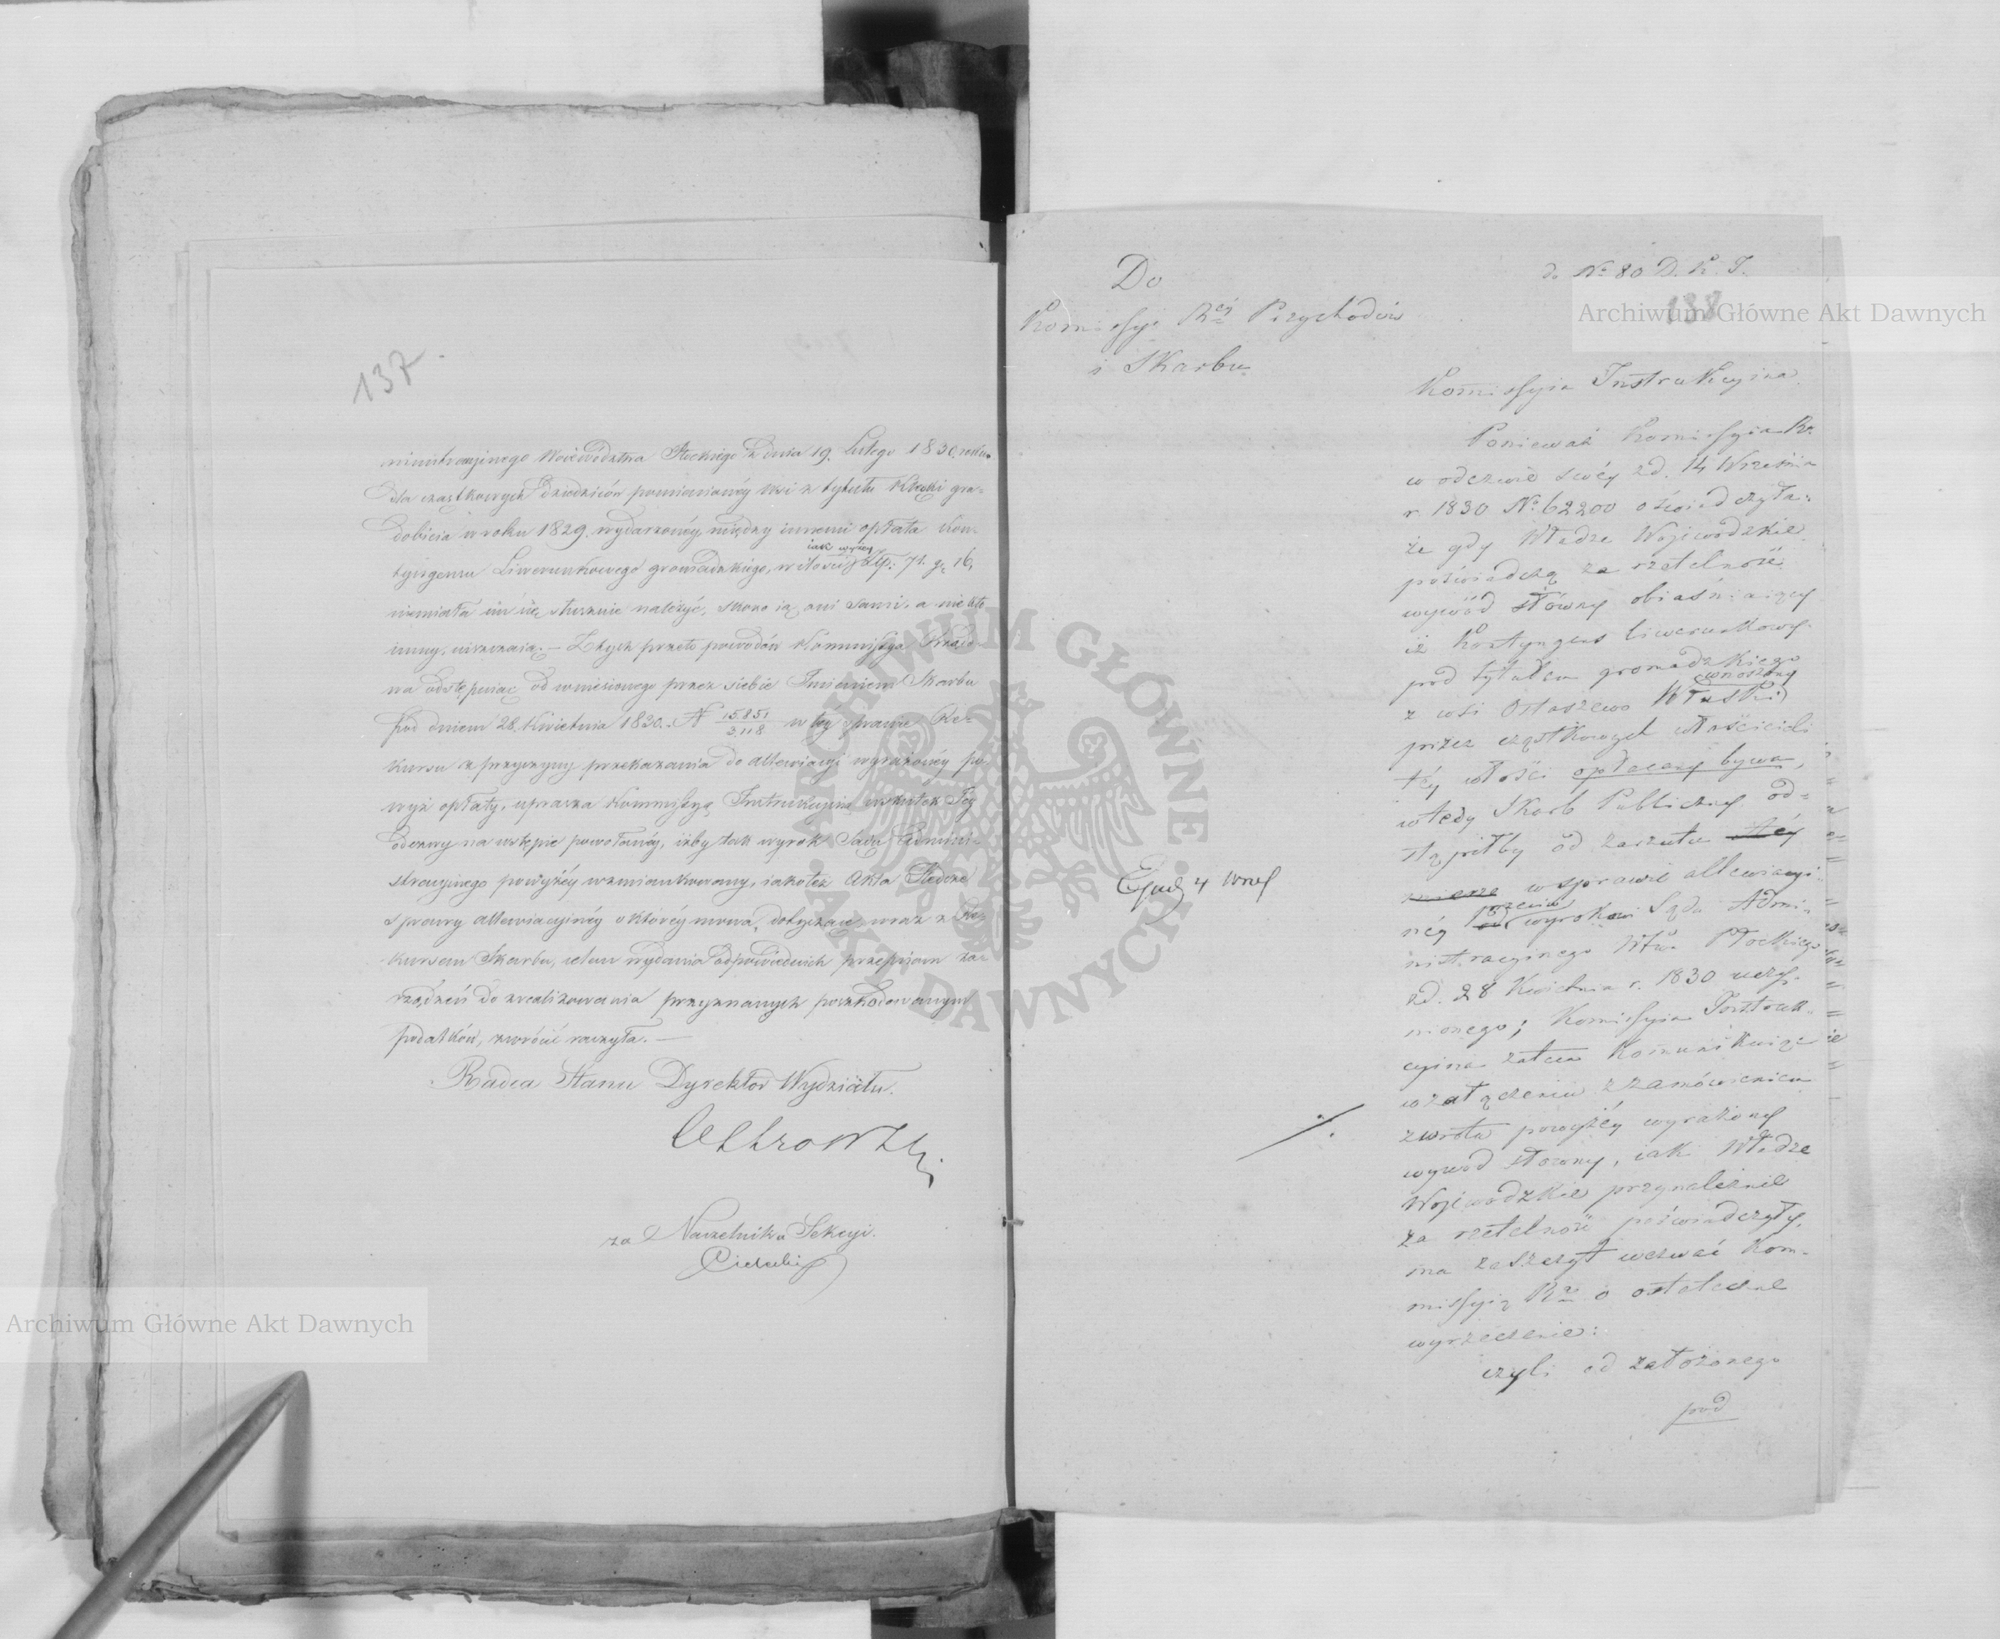 137.
ministracyjnego Województwa Płockiego z dnia 19. Lutego 1830. roku
dla cząstkowych Dziedziców pomienionéy wsi z tytułu Klęski gra-
dobicia w roku 1829. wydarzonéy, między innemi opłata Kon-
tyngensu Liwerunkowego gromadzkiego, w ilości jak wyżéy złp: 71. gr. 16.
niemiała im się słusznie należyć, skoro ią oni sami, a nie kto
inny, uiszczaią. — Z tych przeto powodów Kommissya Rządo-
wa odstępuiąc od wniesionego przez siebie Imieniem Skarbu
pod dniem 28. Kwietnia 1830. N 15.851/3.118 w téy sprawie Re-
kursu z przyczyny przekazania do allewiacyi wyrażonéy po-
wyż opłaty, uprasza Kommissyą Instrukcyiną wskutek Jéy
odezwy na wstępie powołanéy, iżby tak wyrok Sądu Admini-
stracyinego powyżéy wzmiankowany, iakoteż Akta Śledcze
sprawy allewiacyinéy o któréy mowa, dotyczące, wraz z Re-
kursem Skarbu, celem wydania odpowiednich przepisom za-
rządzeń do zrealizowania przyznanych poszkodowanym
podatków, zwrócić raczyła. —
Radca Stanu Dyrektor Wydziału.
za Naczelnika Sekcyi.
Do
Komissyi Réy Przychodów
i Skarbu
do No 80 D. K. I.
138
Komissyia Instrukcyina
Ponieważ Komissyia R.
w odezwie swéy z d. 14 Września
r. 1830 No 62200 oświadczyła:
że gdy Władze Wojewódzkie
poświadczą za rzetelność
wywód słowny obiaśniaiący
iż Kontyngens liwerunkowy
pod tytułem gromadzkiego
z wsi Ostaszewo Włuski wnoszony
przez cząstkowych właścicieli
téy włości opłacany bywa,
wtedy Skarb Publiczny od-
stąpiłby od zarzutu téy
w sprawie allewiacyi-
néy przeciw wyrokowi Sądu Admi-
nistracyinego Wtwa Płockiego
z d. 28 Kwietnia r. 1830 uczy-
nionego; Komissyia Instruk-
cyina zatem Komunikuiąc
w załączeniu z zamówieniem
zwrotu powyżéy wyrażony
wywód słowny, iak Władze
Wojewódzkie przynależnie
za rzetelność poświadczyły,
ma zaszczyt wezwać Kom-
missyią Rą o ostateczne
wyrzeczenie:
czyli od założonego
pod
Archiwum Główne Akt Dawnych
Archiwum Główne Akt Dawnych
ARCHIWUM GŁÓWNE AKT DAWNYCH